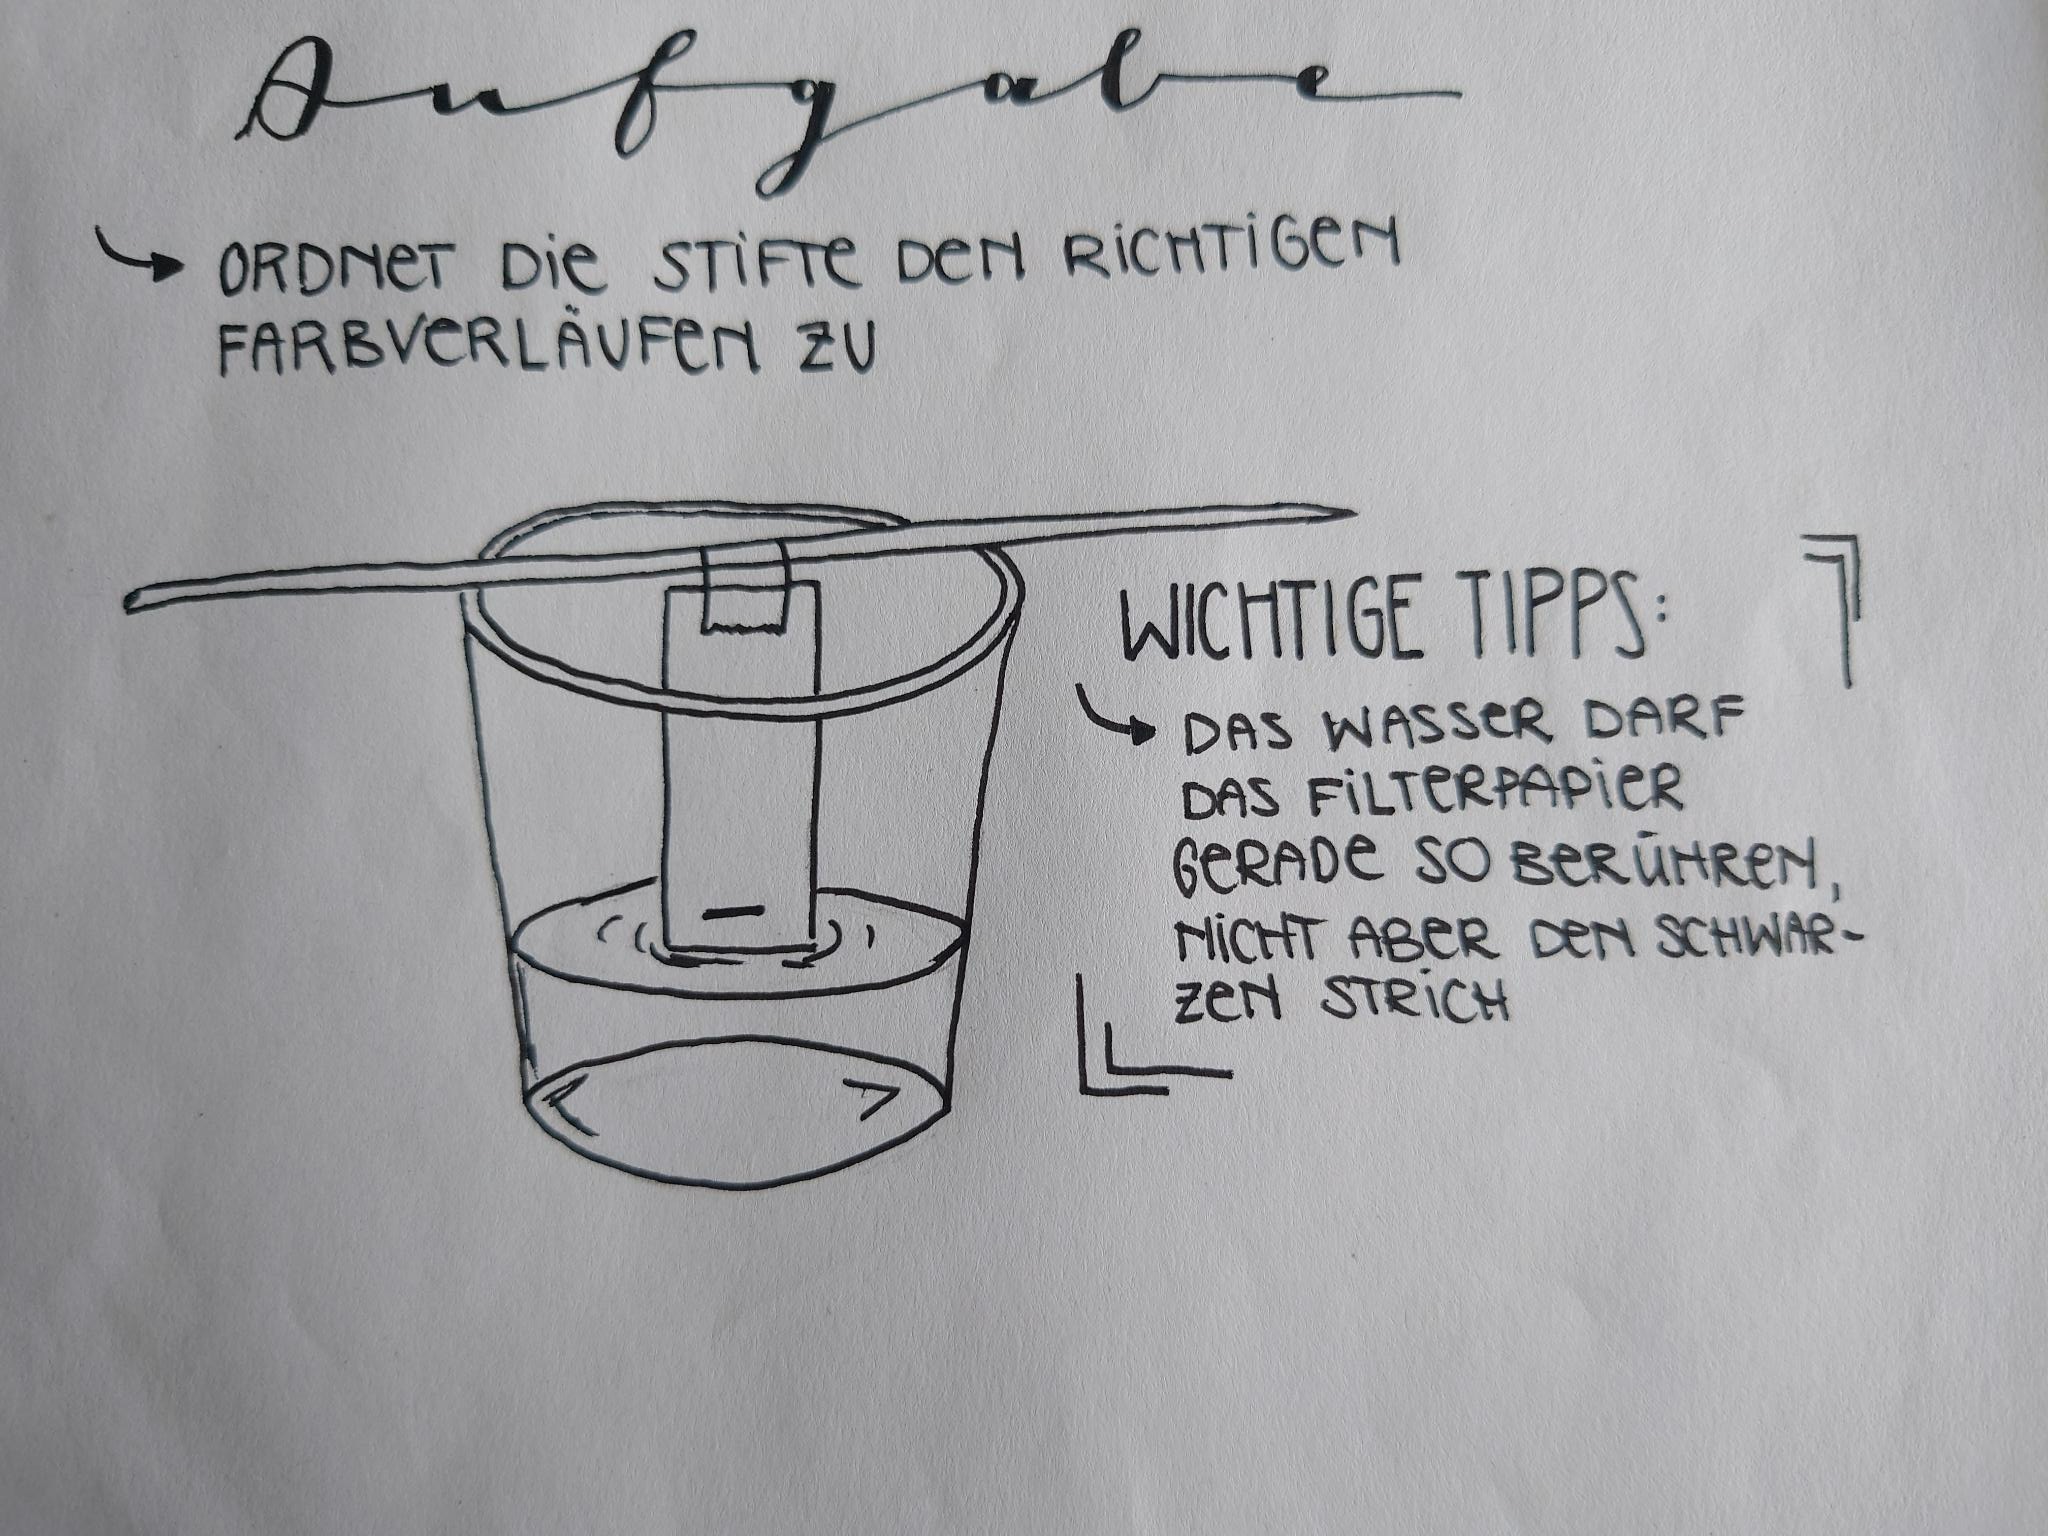 Aufgabe
ORDNET DIE STIFTE DEN RICHTIGEN
FARBVERLÄUFEN ZU
WICHTIGE TIPPS:
DAS WASSER DARF
DAS FILTERPAPIER
GERADE SO BERÜHREN,
NICHT ABER DEN SCHWAR-
ZEN STRICH